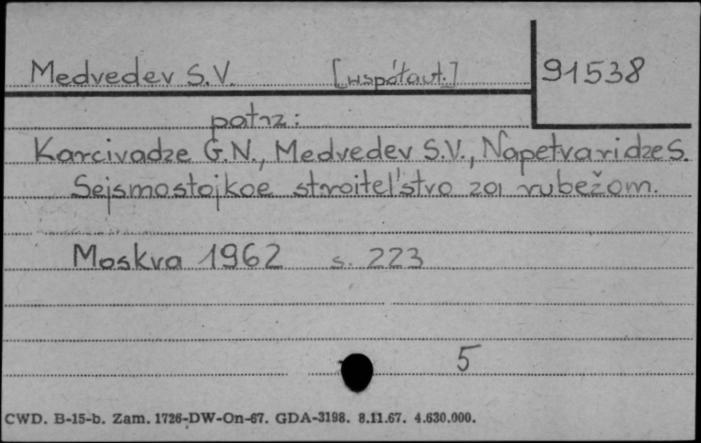 Medvedev S.V. [współaut.] 91538
patrz:
Karcivadze G.N., Medvedev S.V., Napetvaridze S.
Sejsmostojkoe stroitel'stvo za rubežom.
Moskva 1962 s. 223
5
CWD. B-15-b. Zam. 1726-DW-On-67. GDA-3198. 8.11.67. 4.630.000.